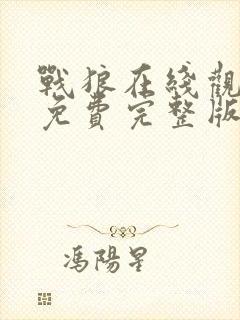 戰狼在綫觀
免費完整版
馮陽星